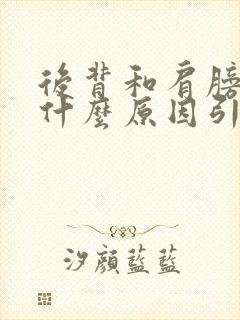 後背和肩膀
什麼原因引
汐顏藍藍